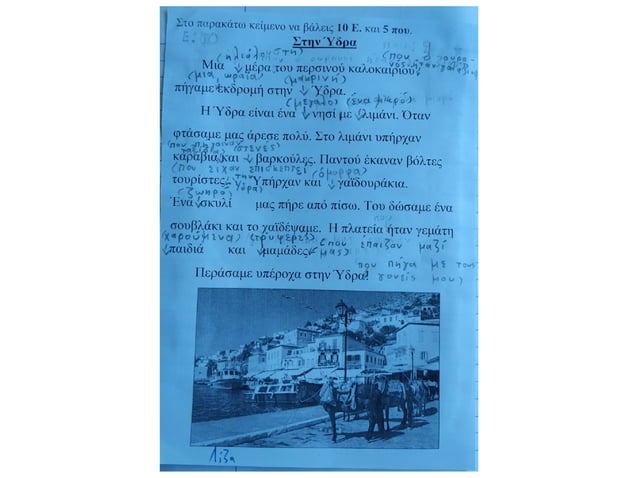 Στο παρακάτω κείμενο να βάλεις 10 Ε. και 5 που.
Στην Ύδρα
(που ο ουρα-
Μια μέρα του περσινού καλοκαιριού,
(μια ωραία) (μακρινή)
πήγαμε εκδρομή στην Ύδρα.
(μεγάλο) (ένα μικρό)
Η Ύδρα είναι ένα νησί με λιμάνι. Όταν
φτάσαμε μας άρεσε πολύ. Στο λιμάνι υπήρχαν
(που πήγαιναν (στενές)
καράβια και βαρκούλες. Παντού έκαναν βόλτες
(που είχαν επισκεπτεί (όμορφα)
τουρίστες. την Ύδρα) Υπήρχαν και γαϊδουράκια.
(ζωηρό)
Ένα σκυλί μας πήρε από πίσω. Του δώσαμε ένα
σουβλάκι και το χαϊδέψαμε. Η πλατεία ήταν γεμάτη
(χαρούμενα) (τρυφερές) (που έπαιζαν μαζί
παιδιά και μαμάδες. μας)
που πήγα με τους
Περάσαμε υπέροχα στην Ύδρα! γονείς μου)
Λίζα